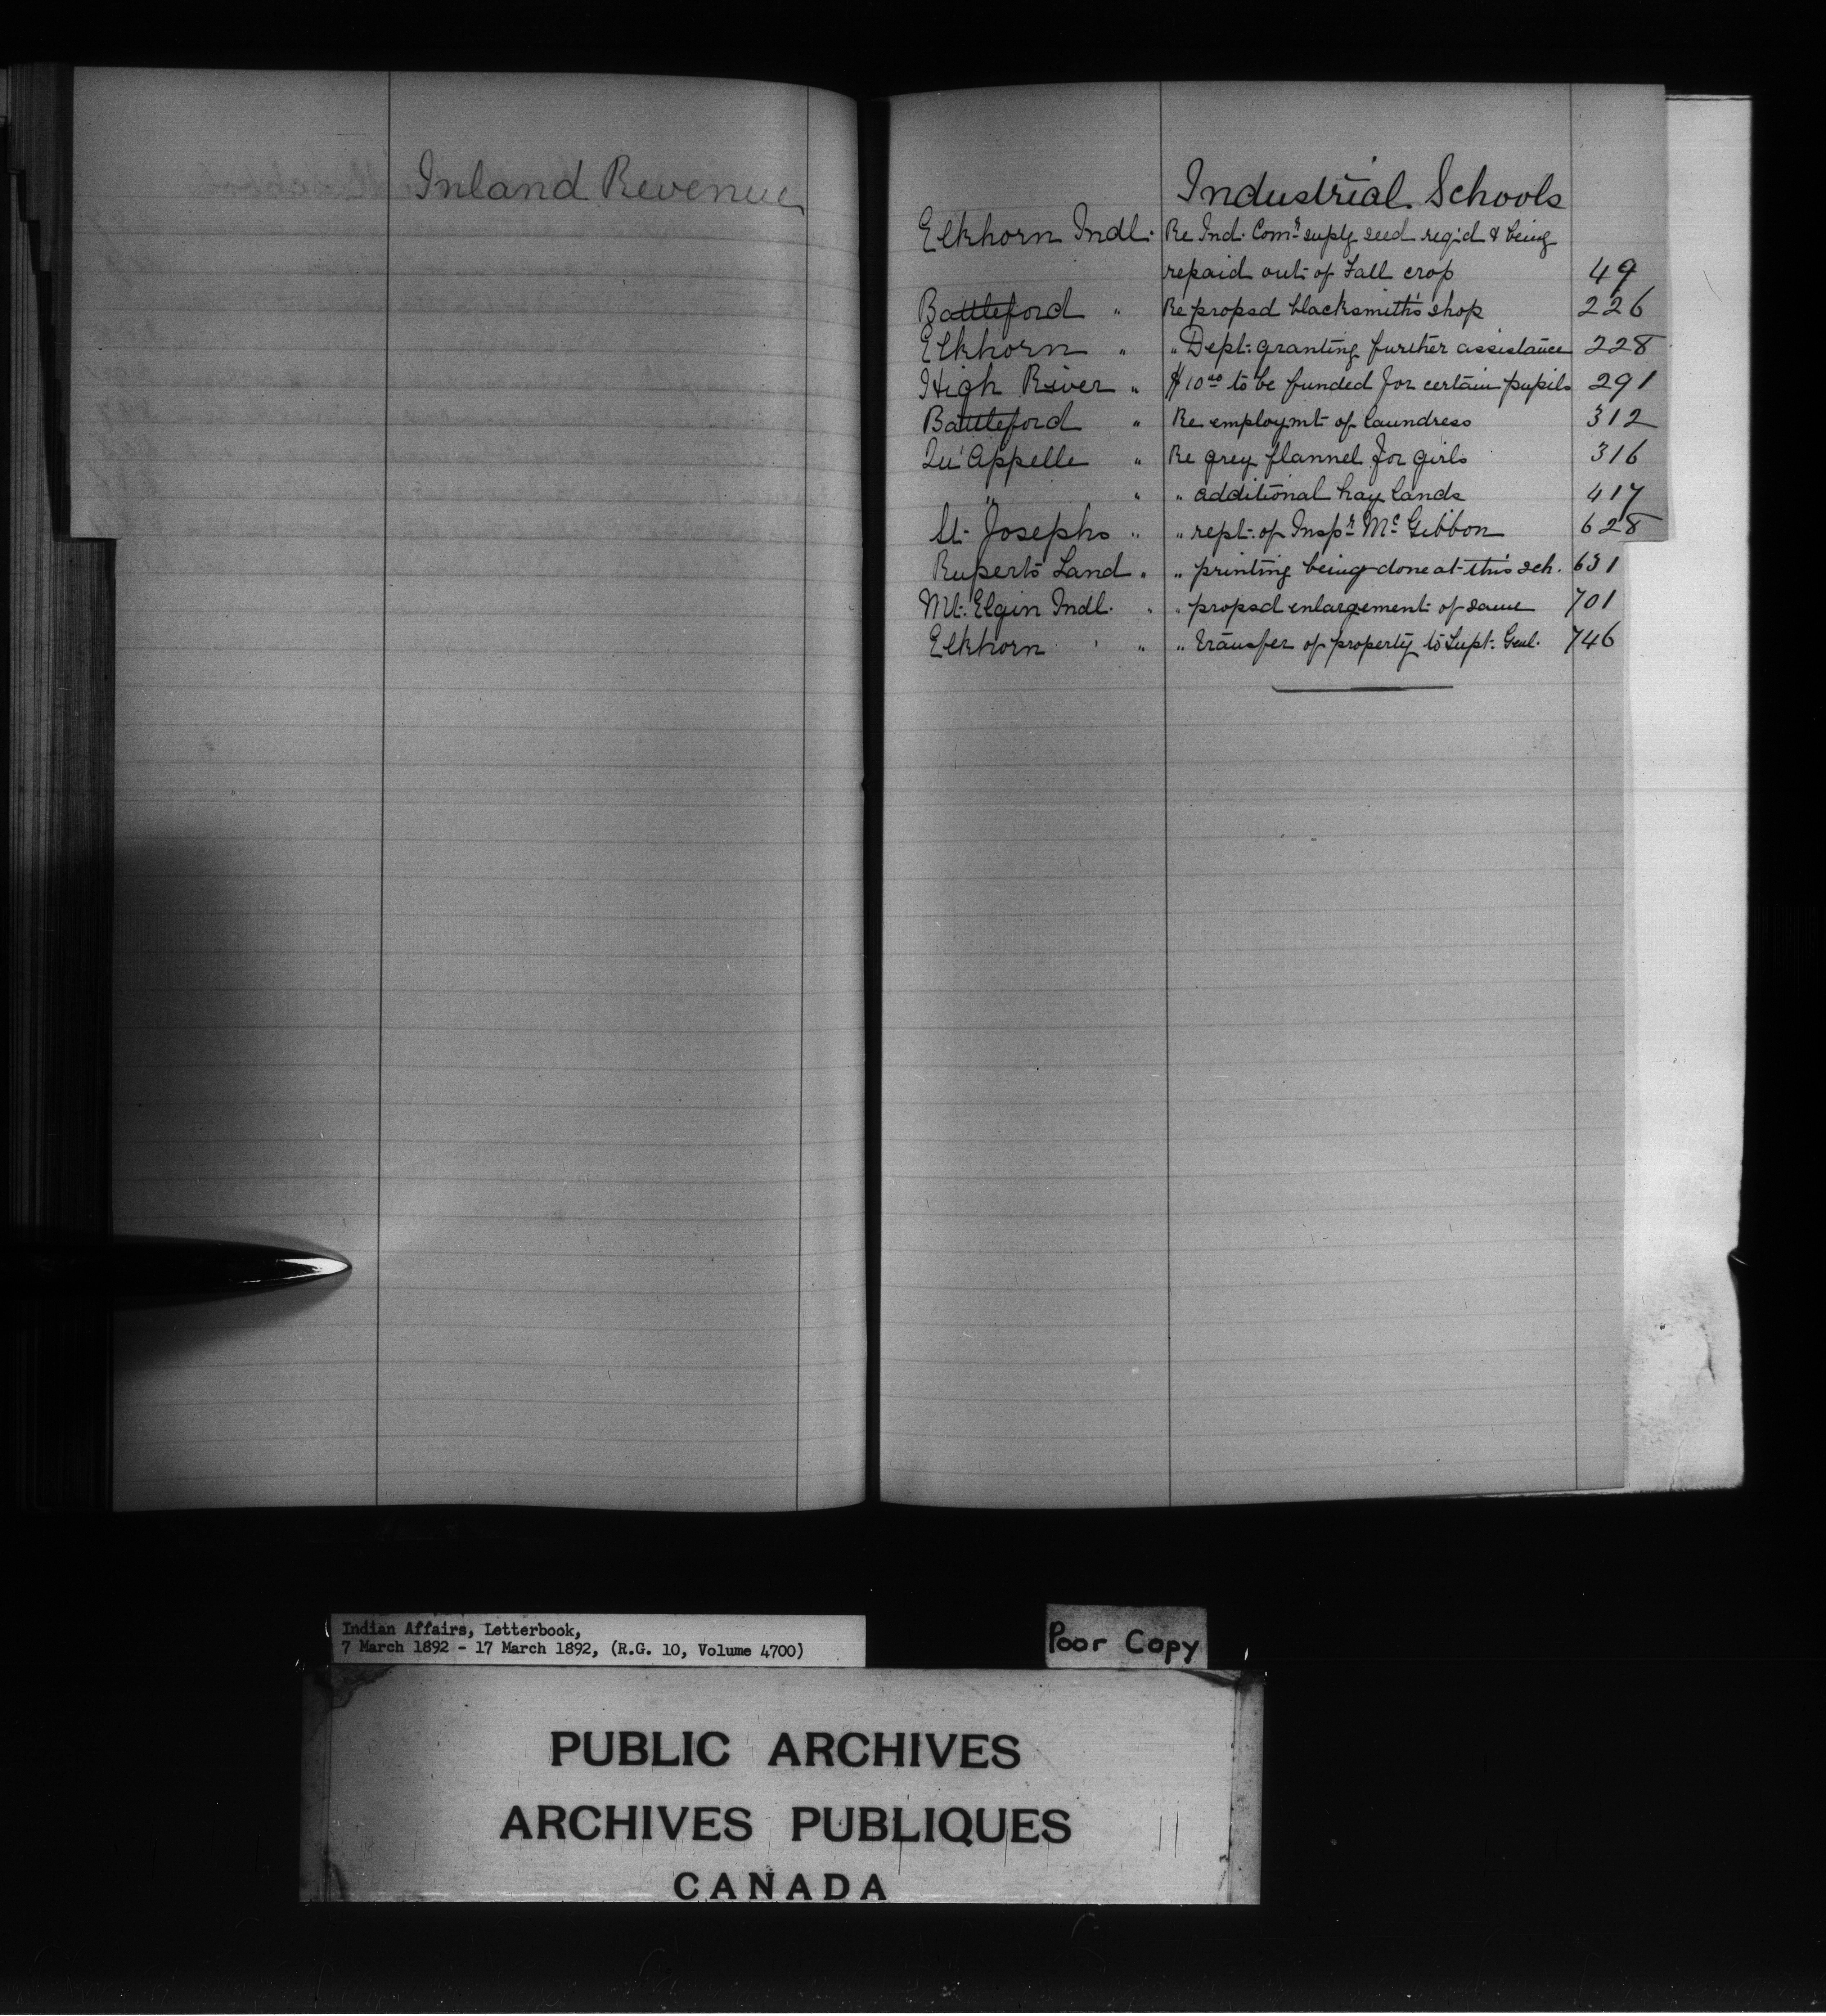 Inland Revenue
Industrial Schools
Elkhorn Indl. Re Ind. Comr suply seed reqd & being
repaid out of Fall crop 49
Battleford " Re propsd blacksmith's shop 226
Elkhorn " " Dept. granting further assistance 228
High River " $1000 to be funded for certain pupils 291
Battleford " Re employmt of laundress 312
Qu'Appelle " Re grey flannel for girls 316
" " " additional hay lands 417
St. Josephs " " rept. of Inspr McGibbon 628
Ruperts Land " " printing being done at this sch. 631
Mt. Elgin Indl. " " propsd enlargement of same 701
Elkhorn " " transfer of property to Supt. Genl. 746
Indian Affairs, Letterbook,
7 March 1892 - 17 March 1892, (R.G. 10, Volume 4700)
Poor Copy
PUBLIC ARCHIVES
ARCHIVES PUBLIQUES
CANADA